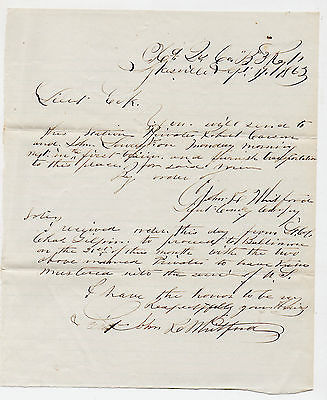 Hd Qr Co B 3 Regt
Sykesville Sept 1863
Lieut Cook.
You will send to
this Station Privates Robert
and John on Monday morning
next in the first train and furnish transportation
to this place, for said men
by order of
John D. Whitford
Lieut Comdg Compy
Notes,
I received order this day from
Chas Gilpin to proceed to Baltimore
on the of this month with the two
above named Privates to have them
mustered into the serv. of U.S.
I have the honor to be very
Respectfully your
John D. Whitford